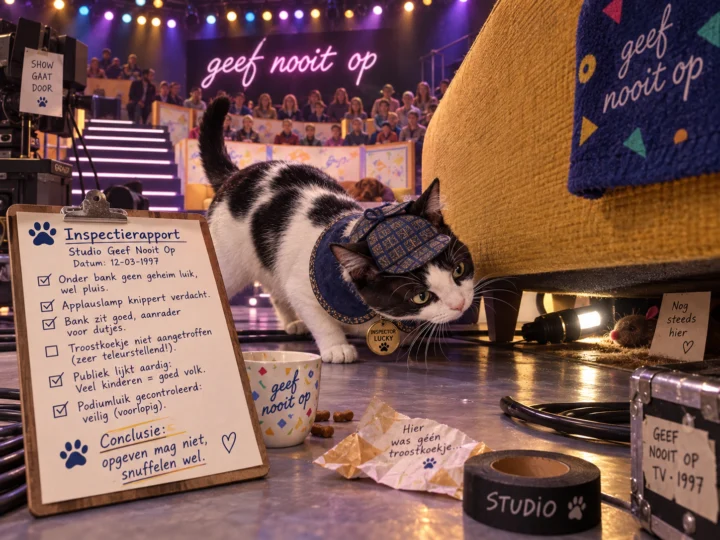 SHOW
GAAT
DOOR
geef nooit op
geef
nooit op
Inspectierapport
Studio Geef Nooit Op
Datum: 12-03-1997
Onder bank geen geheim luik,
wel pluis.
Applauslamp knippert verdacht.
Bank zit goed, aanrader
voor dutjes.
Troostkoekje niet aangetroffen
(zeer teleurstellend!).
Publiek lijkt aardig:
Veel kinderen = goed volk.
Podiumluik gecontroleerd:
veilig (voorlopig).
Conclusie:
opgeven mag niet,
snuffelen wel.
INSPECTOR
LUCKY
Nog
steeds
hier
geef
nooit op
Hier
was géén
troostkoekje...
STUDIO
GEEF
NOOIT OP
TV • 1997